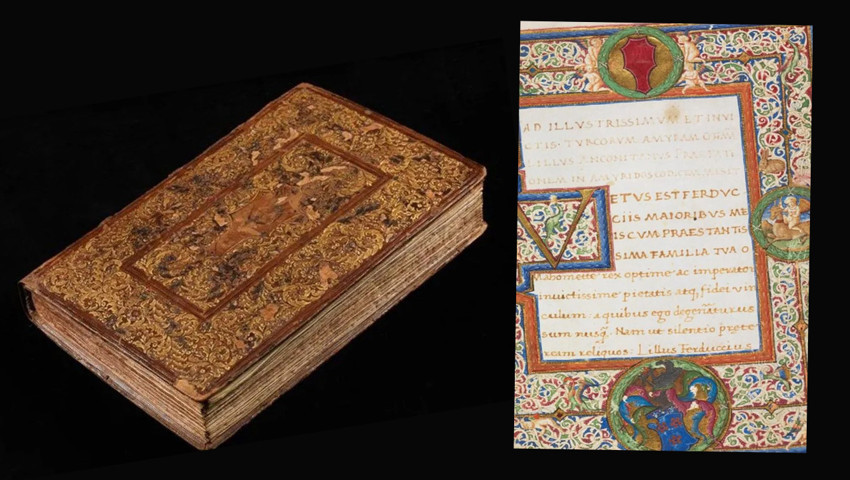 AD ILLUSTRISSIMUM ET INVI
CTIS · TURCORUM
LILLUS ANCONITANUS PRAEFATI
ONEM IN AMYRIDOS
VETUS EST FERDUC
CIIS MAIORIBUS ME
IS CUM PRAESTANTIS
SIMA FAMILIA TUA O
Mahomette rex optime ac imperator
inuictissime pietatis atq; fidei vin
culum: a quibus ego degeneraturus
sum nusq̃. Nam ut silentio prete
ream reliquos: Lillus Ferduccius